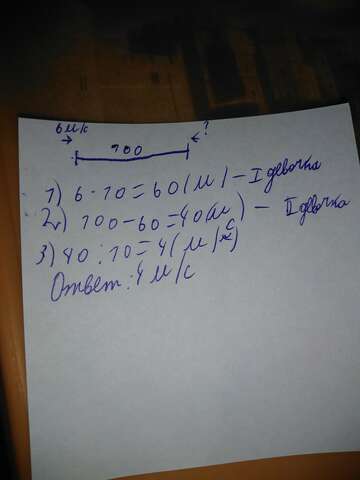 6 м/с ?
100
1) 6 · 10 = 60 (м) – I девочка
2) 100 – 60 = 40 (м) – II девочка
3) 40 : 10 = 4 (м/с)
Ответ: 4 м/с